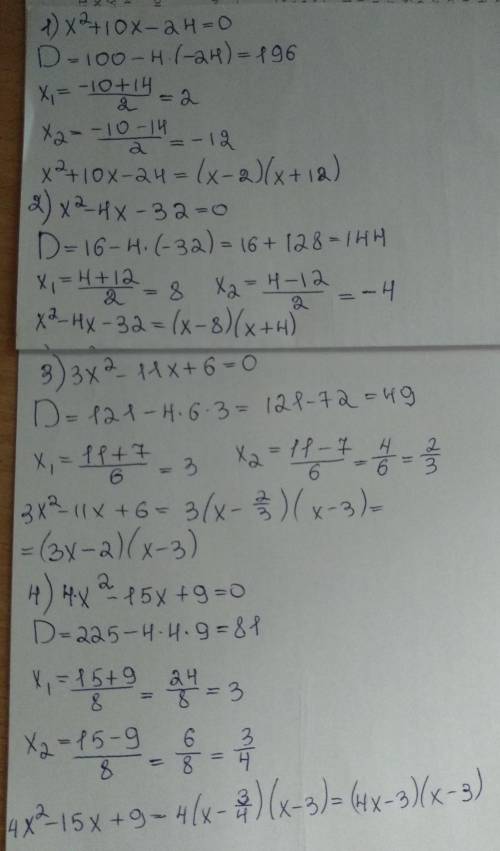 1) x²+10x-24=0
D=100-4·(-24)=196
x₁=\frac{-10+14}{2}=2
x₂=\frac{-10-14}{2}=-12
x²+10x-24=(x-2)(x+12)
2) x²-4x-32=0
D=16-4·(-32)=16+128=144
x₁=\frac{4+12}{2}=8 x₂=\frac{4-12}{2}=-4
x²-4x-32=(x-8)(x+4)
3) 3x²-11x+6=0
D=121-4·6·3=121-72=49
x₁=\frac{11+7}{6}=3 x₂=\frac{11-7}{6}=\frac{4}{6}=\frac{2}{3}
3x²-11x+6=3(x-\frac{2}{3})(x-3)=
=(3x-2)(x-3)
4) 4x²-15x+9=0
D=225-4·4·9=81
x₁=\frac{15+9}{8}=\frac{24}{8}=3
x₂=\frac{15-9}{8}=\frac{6}{8}=\frac{3}{4}
4x²-15x+9=4(x-\frac{3}{4})(x-3)=(4x-3)(x-3)